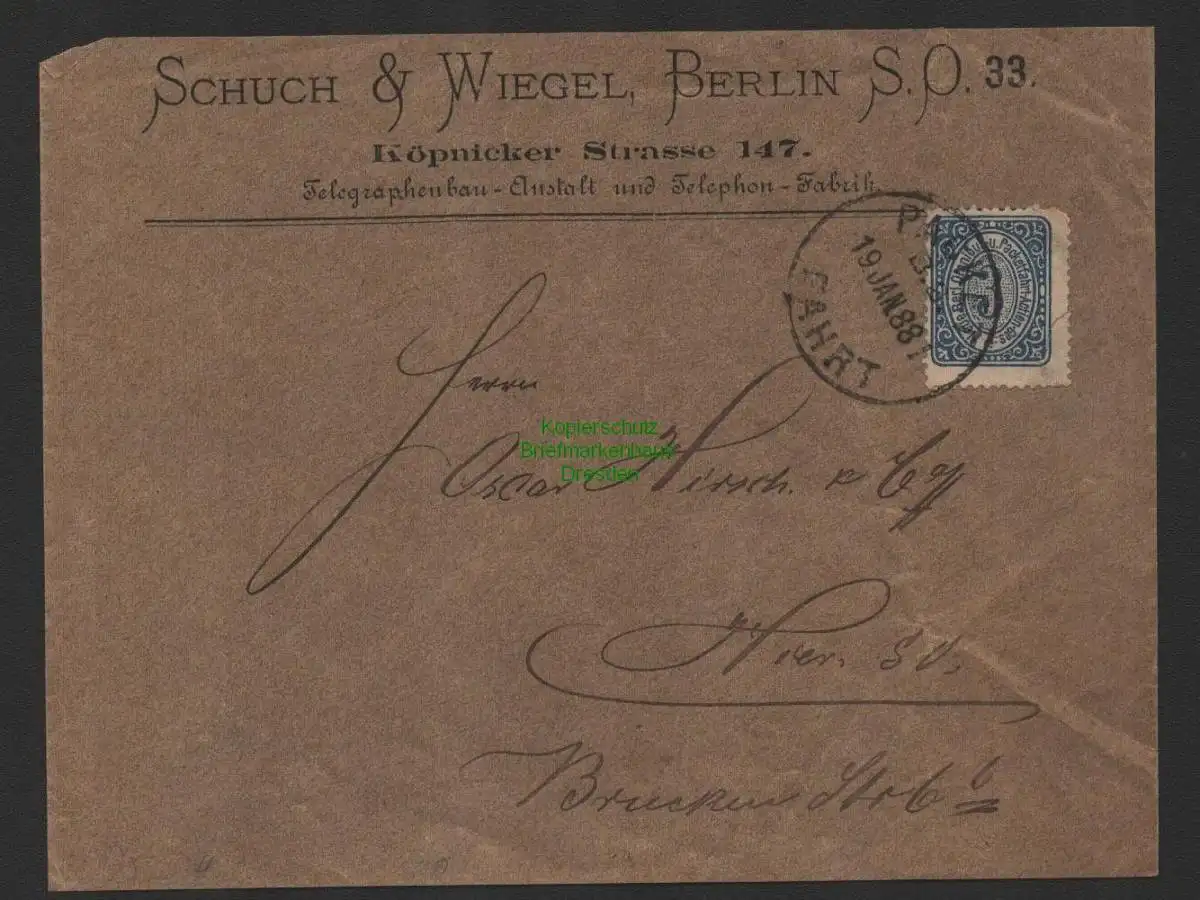 SCHUCH & WIEGEL, BERLIN S.O. 33.
Köpnicker Strasse 147.
Telegraphenbau-Anstalt und Telephon-Fabrik.
PACKET
19.JAN 88
FAHRT
Herrn
Oscar Hirsch.
Kopierschutz
Briefmarkenhaus
Dresden
Hier. SO.
Brucken Str 6 b